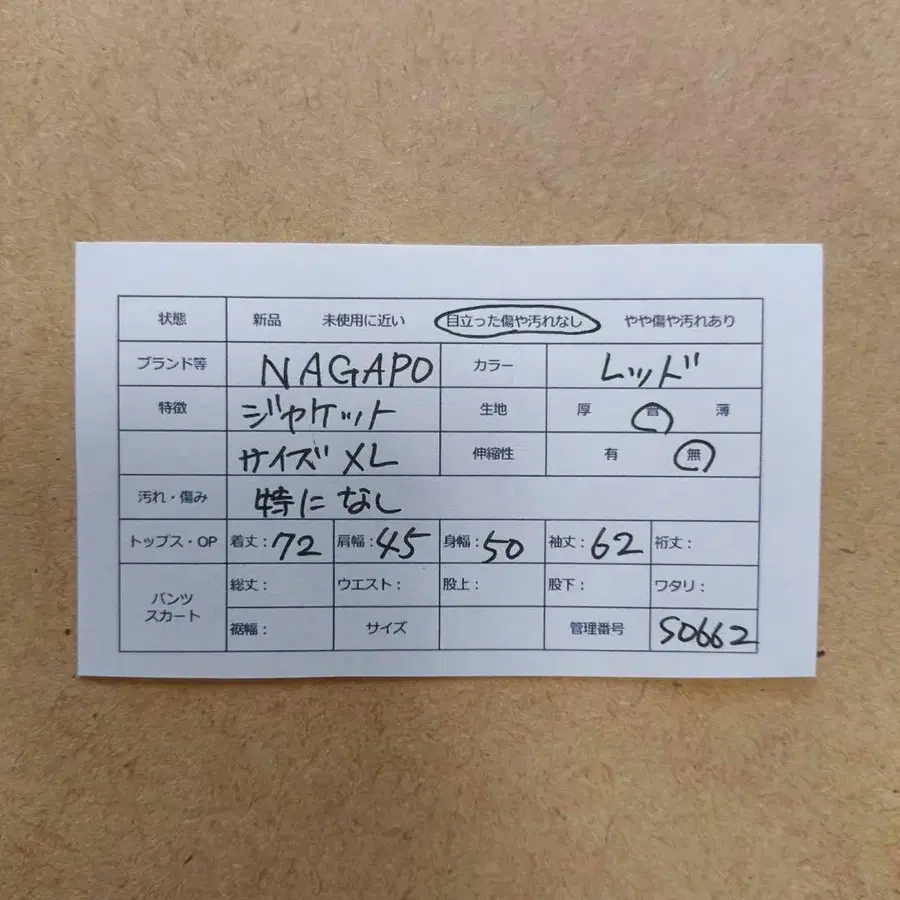 状態 新品 未使用に近い 目立った傷や汚れなし やや傷や汚れあり
ブランド等 NAGAPO カラー レッド
特徴 ジャケット 生地 厚 普 薄
サイズ XL 伸縮性 有 無
汚れ・傷み 特になし
トップス・OP 着丈:72 肩幅:45 身幅:50 袖丈:62 裄丈:
パンツ スカート 総丈: ウエスト: 股上: 股下: ワタリ:
裾幅: サイズ 管理番号 S0662